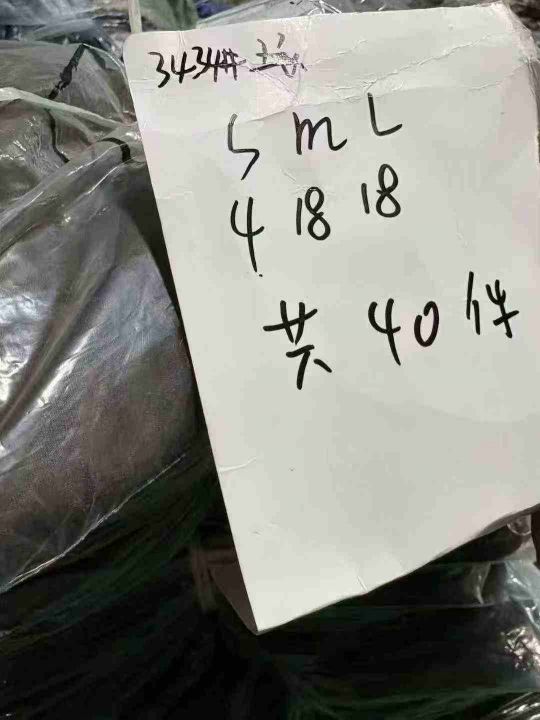 3434#
S M L
4 18 18
共 40 件